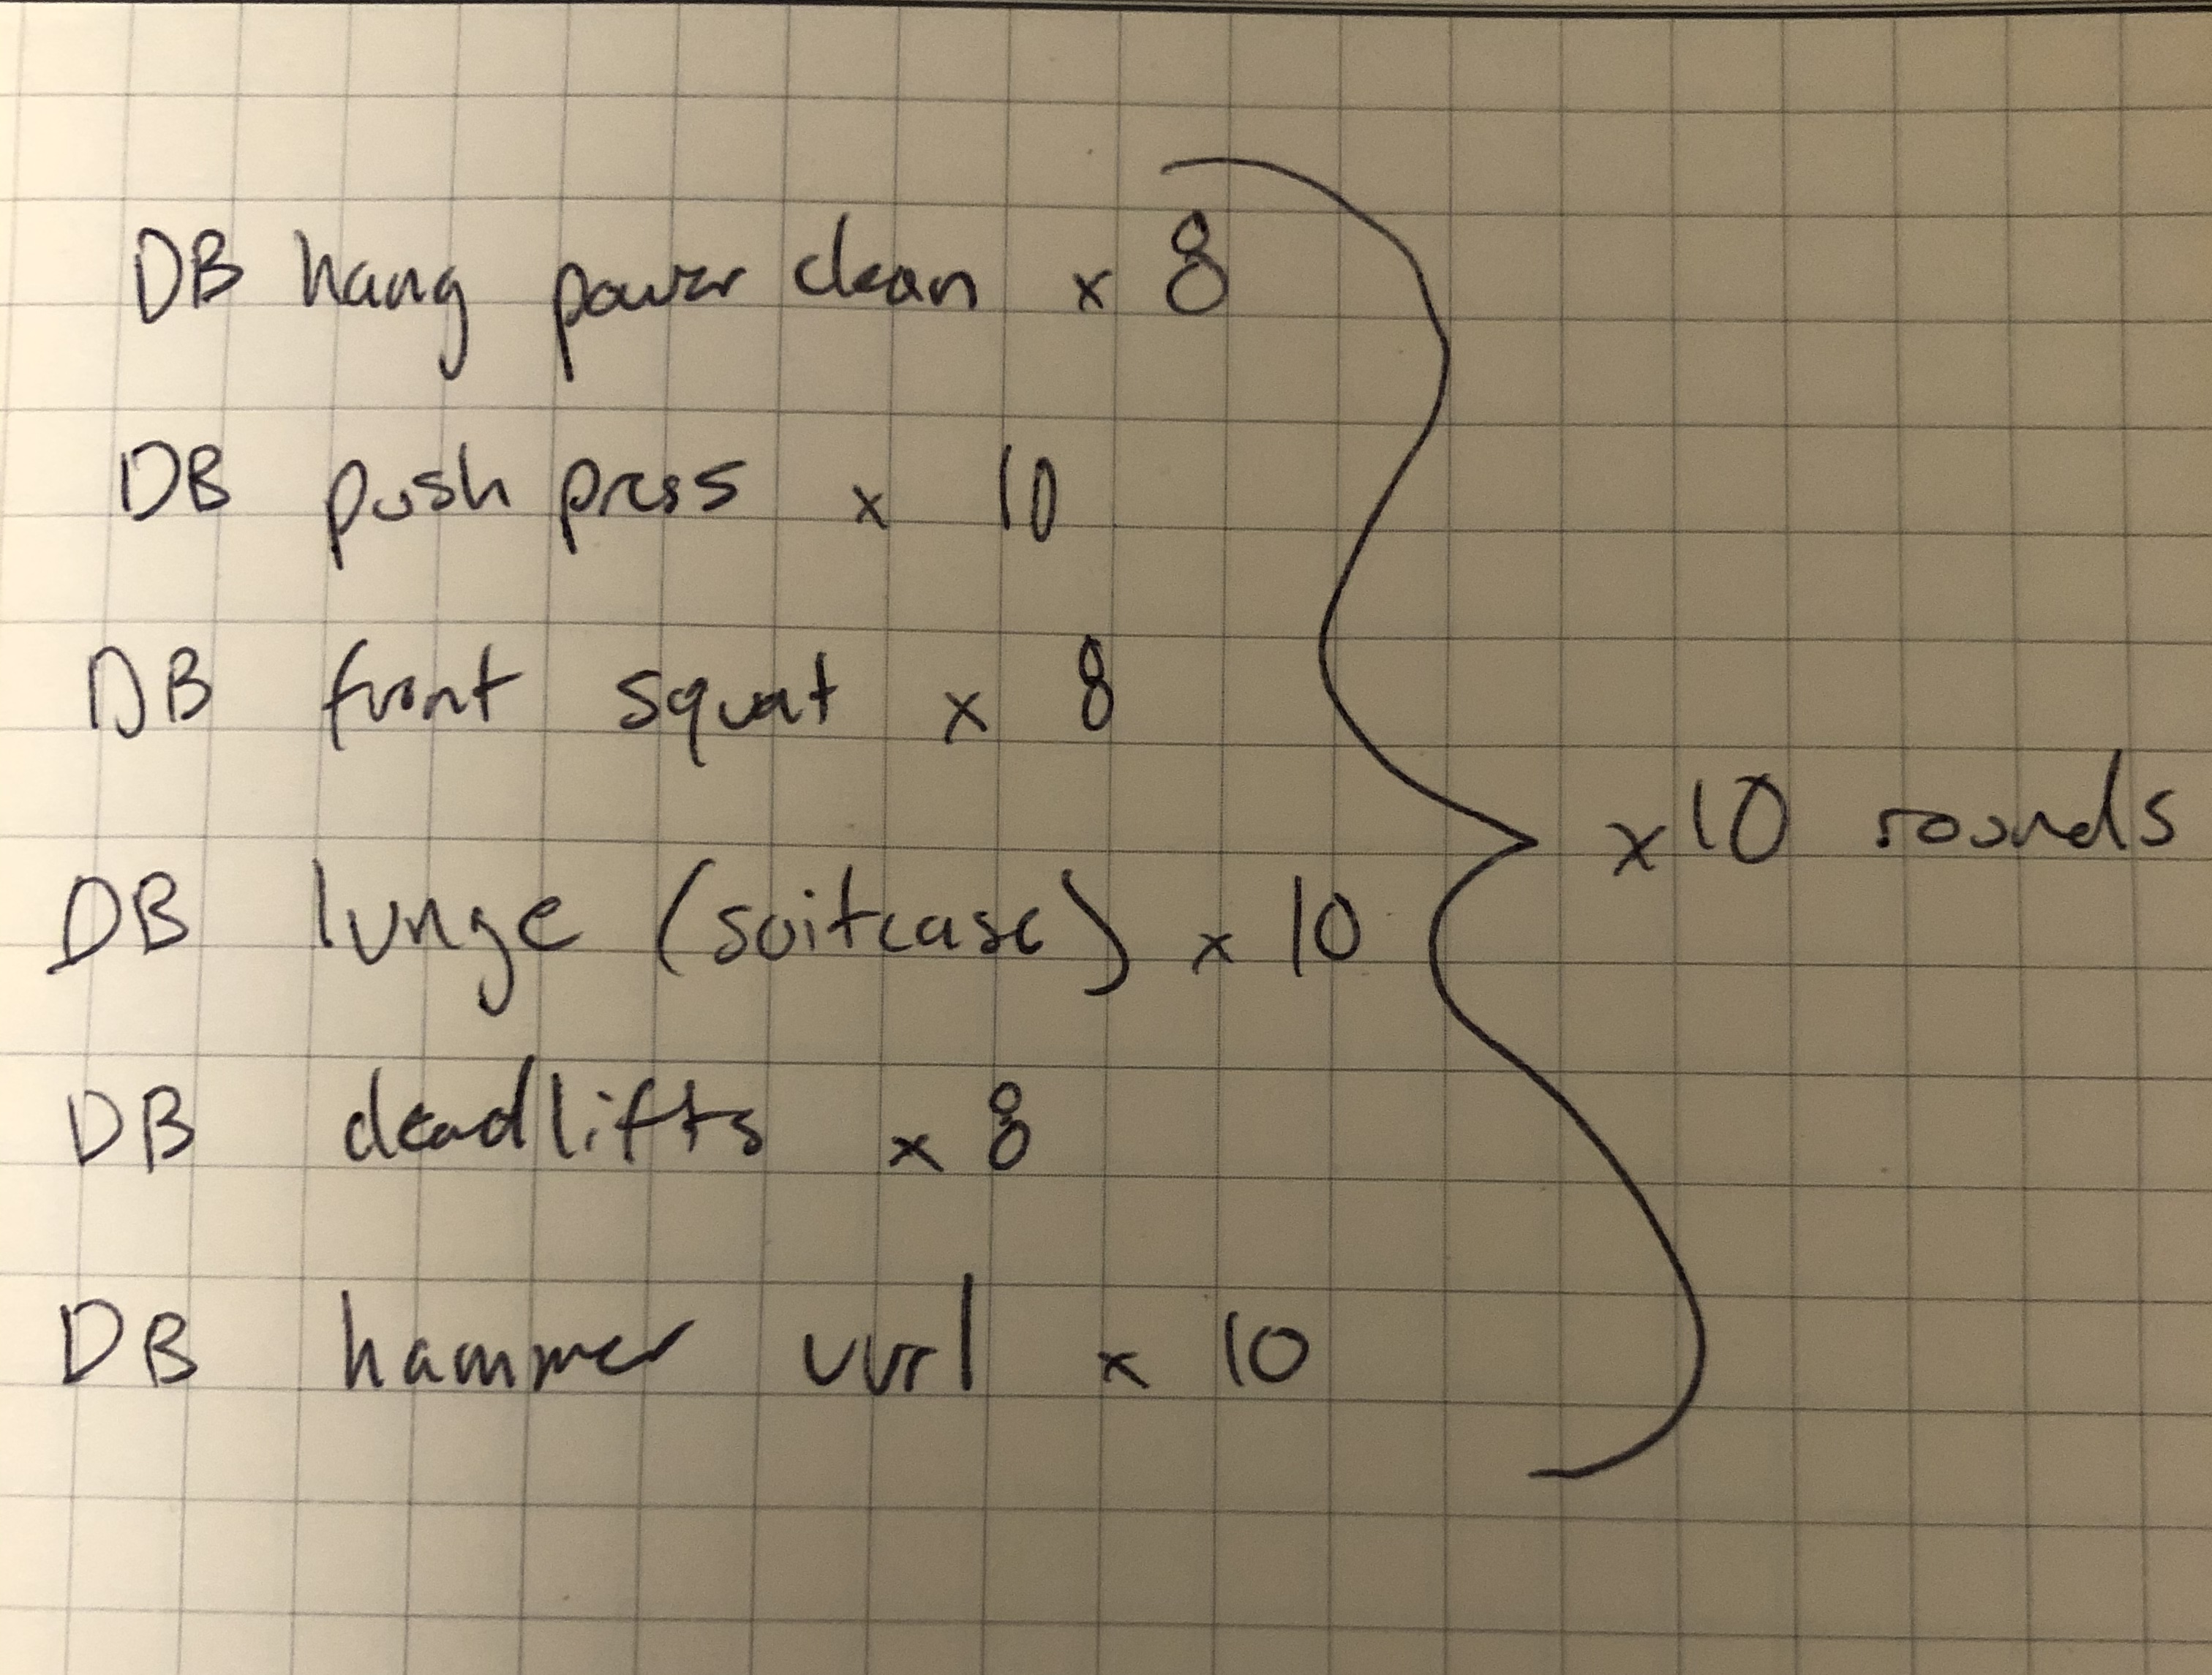 DB hang power clean x 8
DB push press x 10
DB front squat x 8
x10 rounds
DB lunge (suitcase) x 10
DB deadlifts x 8
DB hammer curl x 10